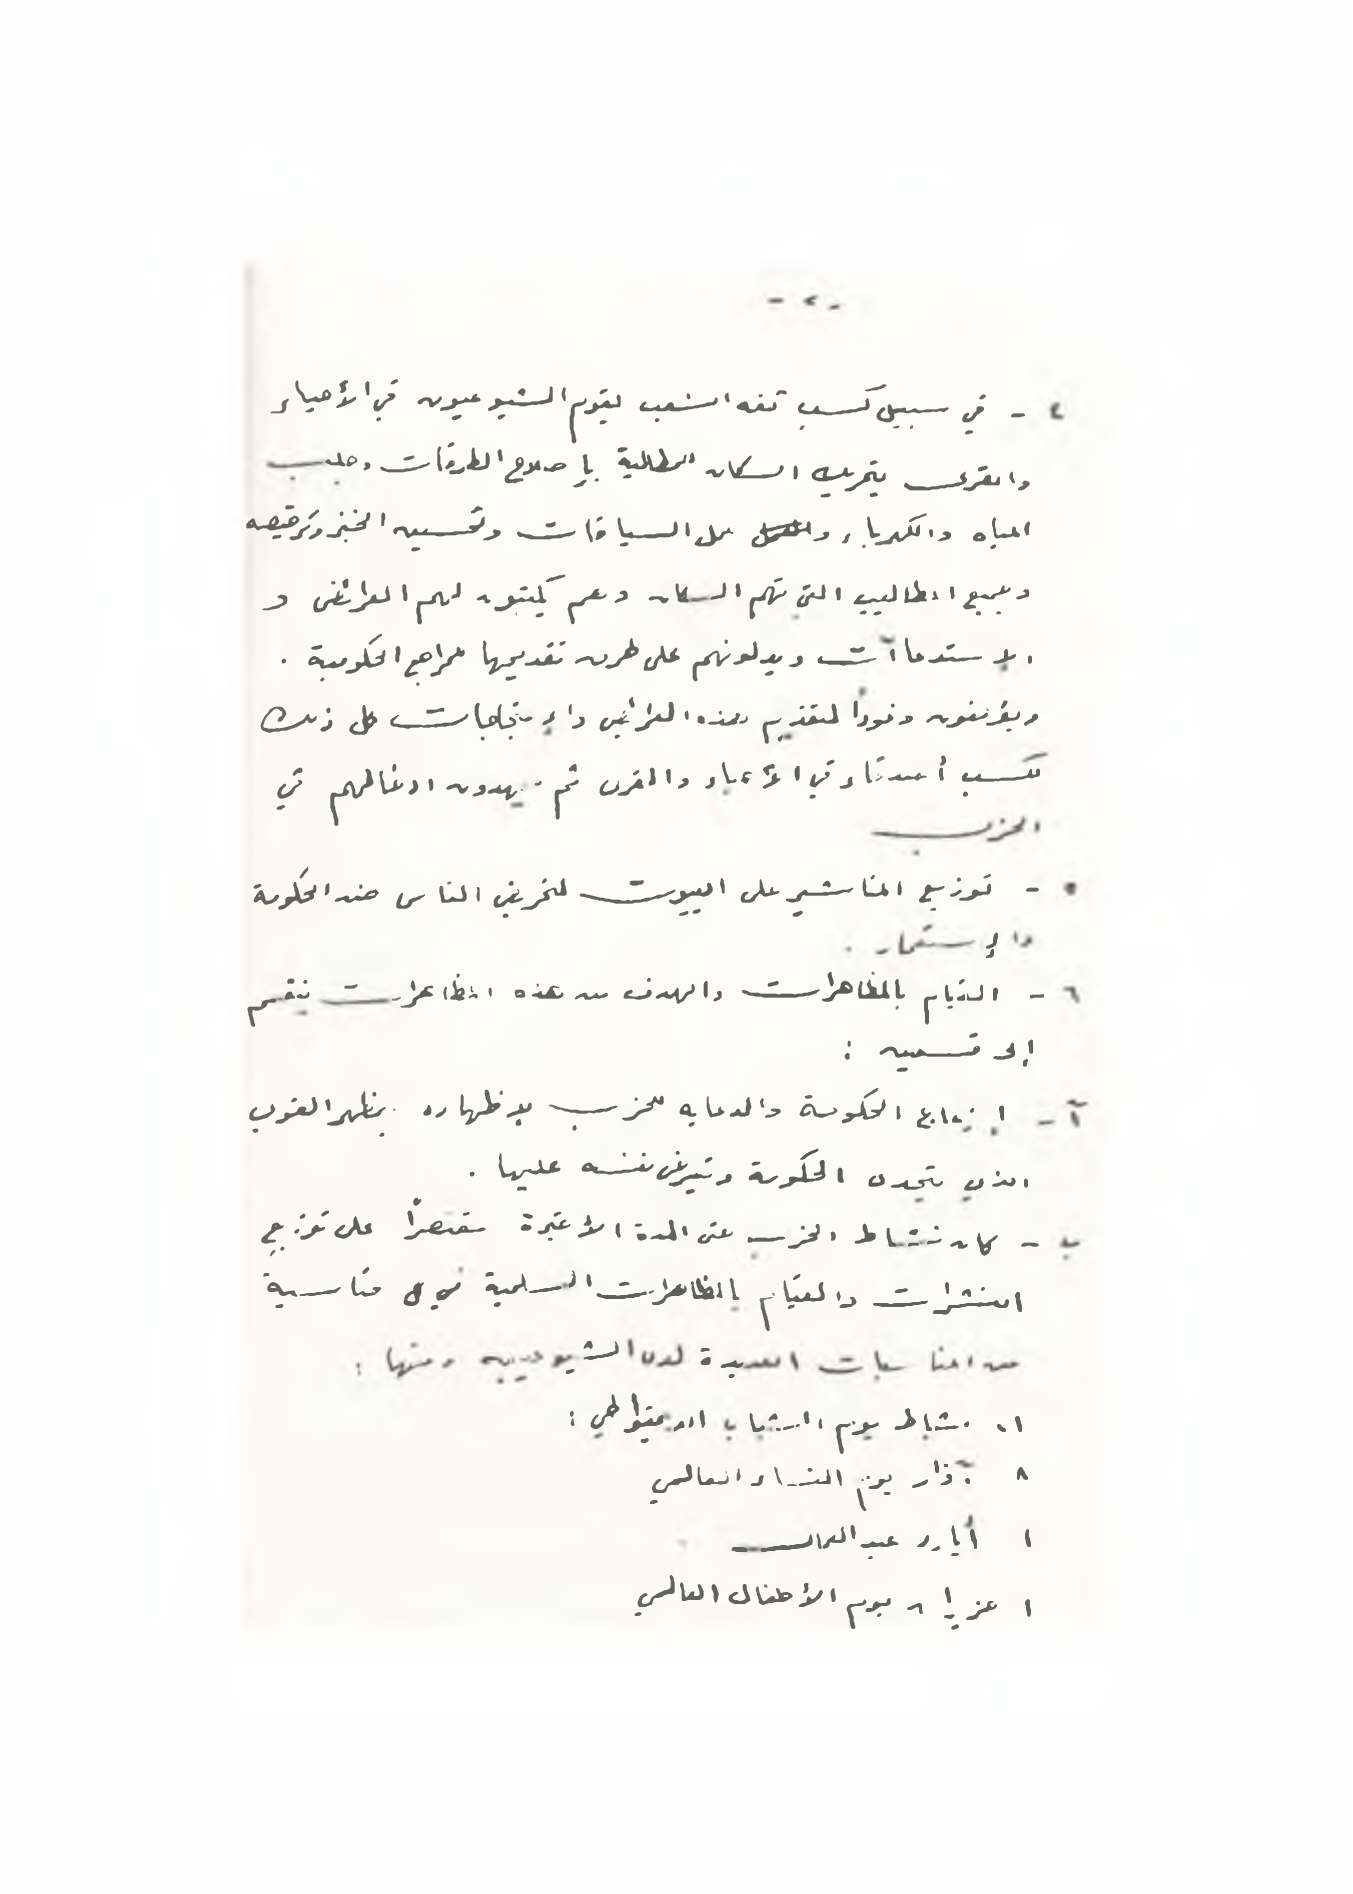 - ٢ -
٤ - في سبيل كسب ثقة الشعب يقوم الشيوعيون في الأحياء
والقرى بتحريك السكان للمطالبة بإصلاح الطرقات وجلب
المياه والكهرباء و عمل السياقات وتحسين الخبز وترخيصه
وجميع المطاليب التي تهم السكان وهم يكتبون لهم العرائض و
الاستدعاآت ويدلونهم على طرق تقديمها للمراجع الحكومية .
ويؤلفون وفوداً لتقديم هذه العرائض والإحتجاجات كل ذلك
لكسب أصدقاء في الأحياء والقرى ثم يمهدون ادخالهم في
الحزب
٥ - توزيع المناشير على البيوت لتحريض الناس ضد الحكومة
والإستعمار .
٦ - القيام بالمظاهرات والهدف من هذه المظاهرات ينقسم
إلى قسمين :
آ - إزعاج الحكومة والدعاية للحزب بإظهاره بمظهر القوي
الذي يتحدى الحكومة ويفرض نفسه عليها .
ب - كان نشاط الحزب حتى المدة الأخيرة مقتصراً على توزيع
النشرات والقيام بالمظاهرات السلمية في كل مناسبة
من المناسبات العديدة لدى الشيوعيين ومنها :
٢١ شباط يوم الشباب الديمقراطي :
٨ آذار يوم النساء العالمي
١ أيار عيد العمال
١ حزيران يوم الأطفال العالمي